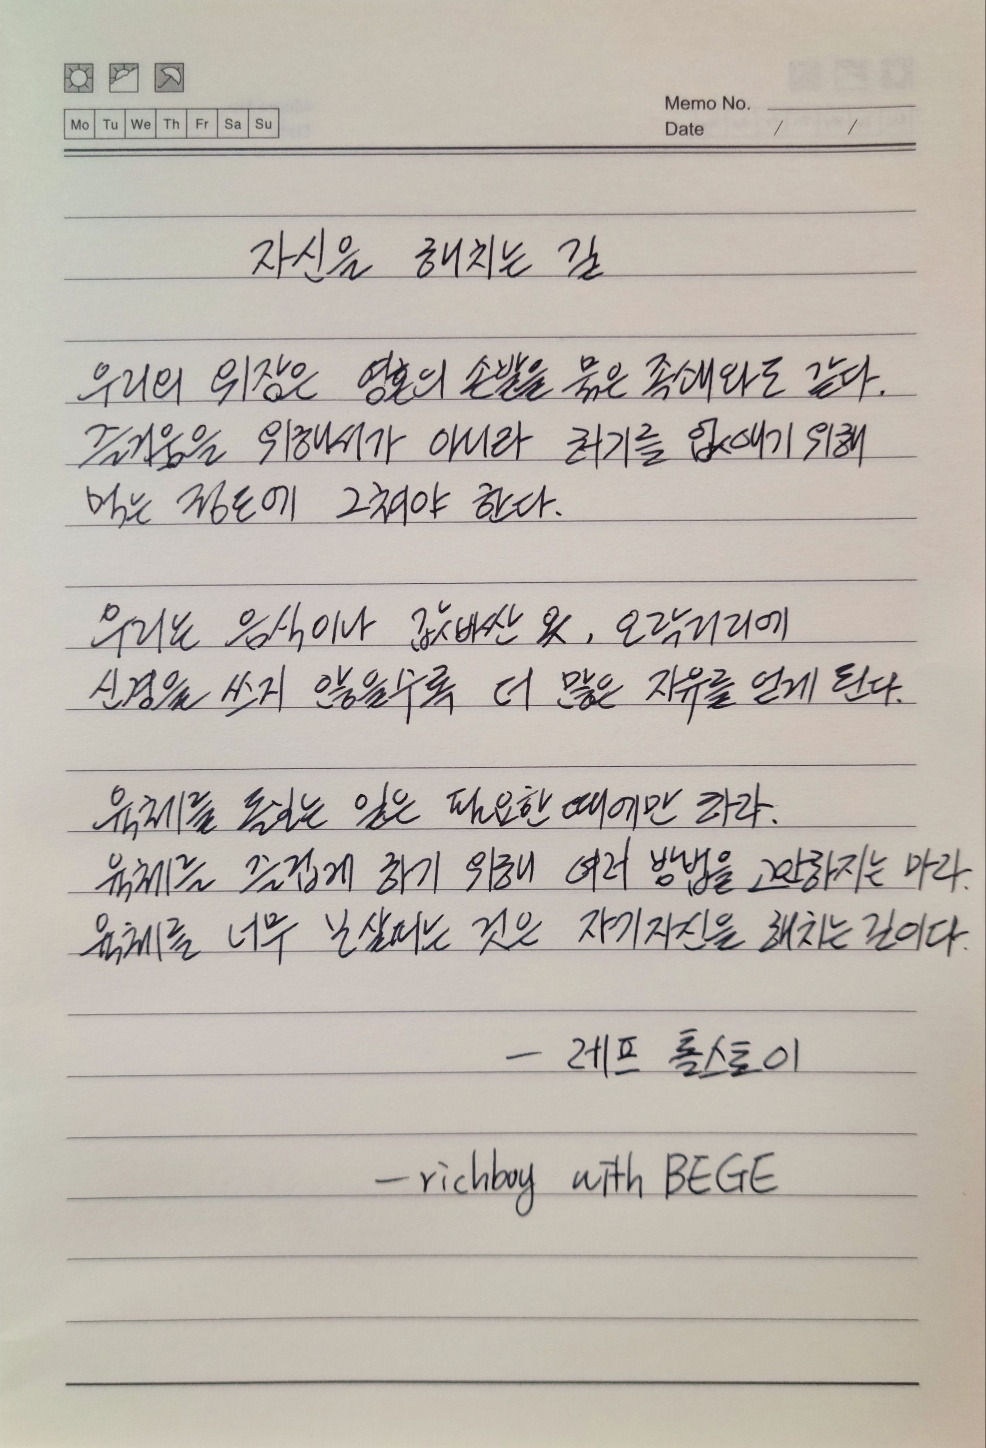 Mo Tu We Th Fr Sa Su
Memo No.
Date / /
자신을 해치는 길
우리의 위장은 영혼의 손발을 묶은 족쇄와도 같다.
즐거움을 위해서가 아니라 허기를 없애기 위해
먹는 정도에 그쳐야 한다.
우리는 음식이나 값비싼 옷, 오락거리에
신경을 쓰지 않을수록 더 많은 자유를 얻게 된다.
육체를 돌보는 일은 필요한 때에만 하라.
육체를 즐겁게 하기 위해 여러 방법을 고안하지는 마라.
육체를 너무 보살피는 것은 자기자신을 해치는 길이다.
- 레프 톨스토이
- richboy with BEGE